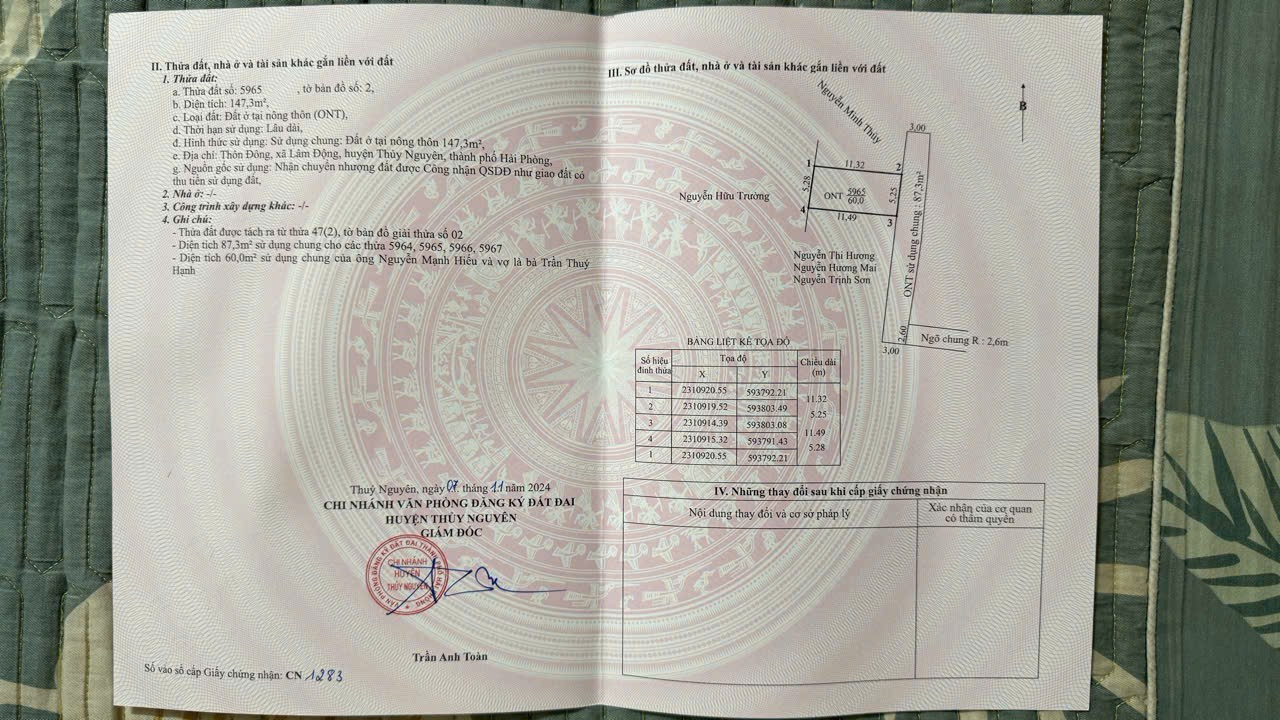 II. Thửa đất, nhà ở và tài sản khác gắn liền với đất
1. Thửa đất:
a. Thửa đất số: 5965 , tờ bản đồ số: 2,
b. Diện tích: 147,3m²,
c. Loại đất: Đất ở tại nông thôn (ONT),
d. Thời hạn sử dụng: Lâu dài,
đ. Hình thức sử dụng: Sử dụng chung: Đất ở tại nông thôn 147,3m²,
e. Địa chỉ: Thôn Đông, xã Lâm Động, huyện Thủy Nguyên, thành phố Hải Phòng,
g. Nguồn gốc sử dụng: Nhận chuyển nhượng đất được Công nhận QSDĐ như giao đất có
thu tiền sử dụng đất,
2. Nhà ở: -/-
3. Công trình xây dựng khác: -/-
4. Ghi chú:
- Thửa đất được tách ra từ thửa 47(2), tờ bản đồ giải thửa số 02
- Diện tích 87,3m² sử dụng chung cho các thửa 5964, 5965, 5966, 5967
- Diện tích 60,0m² sử dụng chung của ông Nguyễn Mạnh Hiếu và vợ là bà Trần Thuý
Hạnh
Thuỷ Nguyên, ngày 07 tháng 11 năm 2024
CHI NHÁNH VĂN PHÒNG ĐĂNG KÝ ĐẤT ĐAI
HUYỆN THỦY NGUYÊN
GIÁM ĐỐC
VĂN PHÒNG ĐĂNG KÝ ĐẤT ĐAI THÀNH PHỐ HẢI PHÒNG
CHI NHÁNH
HUYỆN
THỦY NGUYÊN
Trần Anh Toàn
Số vào sổ cấp Giấy chứng nhận: CN 1283
III. Sơ đồ thửa đất, nhà ở và tài sản khác gắn liền với đất
B
Nguyễn Minh Thủy
3,00
1 11,32 2
5,28 ONT 5965 5,25
60,0
4 11,49 3
Nguyễn Hữu Trường
ONT sử dụng chung : 87,3m²
Nguyễn Thi Hương
Nguyễn Hương Mai
Nguyễn Trịnh Sơn
2,60
3,00
Ngõ chung R : 2,6m
BẢNG LIỆT KÊ TỌA ĐỘ
Số hiệu đỉnh thửa Tọa độ Chiều dài (m)
X Y
1 2310920.55 593792.21
11.32
2 2310919.52 593803.49
5.25
3 2310914.39 593803.08
11.49
4 2310915.32 593791.43
5.28
1 2310920.55 593792.21
IV. Những thay đổi sau khi cấp giấy chứng nhận
Nội dung thay đổi và cơ sở pháp lý
Xác nhận của cơ quan
có thẩm quyền